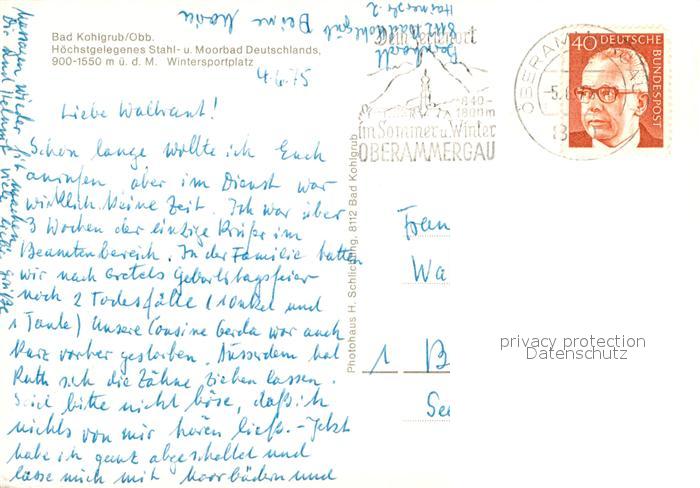 Bad Kohlgrub/Obb.
Höchstgelegenes Stahl- u. Moorbad Deutschlands,
900-1550 m ü. d. M. Wintersportplatz
4.6.75
Liebe Waltraut!
Schon lange wollte ich Euch
anrufen, aber im Dienst war
wirklich keine Zeit. Ich war über
3 Wochen der einzige Prüfer im
Beamtenbereich. In der Familie hatten
wir nach Gretels Geburtstagsfeier
noch 2 Todesfälle (1 Onkel und
1 Tante) Unsere Cousine Gerda war auch
kurz vorher gestorben. Ausserdem hat
Ruth sich die Zähne ziehen lassen.
Seid bitte nicht böse, daß ich
nichts von mir hören ließ. - Jetzt
habe ich ganz abgeschaltet und
lasse mich mit Moorbädern und
Massagen wieder fit machen.
Dir und Helmut viele liebe Grüße
Deine Maria
8112 Bad Kohlgrub
Photohaus H. Schlichting, 8112 Bad Kohlgrub
Dein Ferienort
840-
1800m
im Sommer u. Winter
OBERAMMERGAU
OBERAMMERGAU
40 DEUTSCHE
BUNDESPOST
Frau
Wa
1 B
privacy protection
Datenschutz